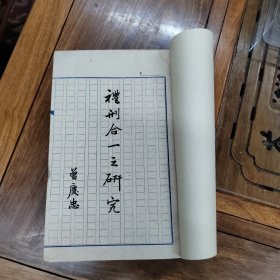 禮刑合一之研究
曾慶忠